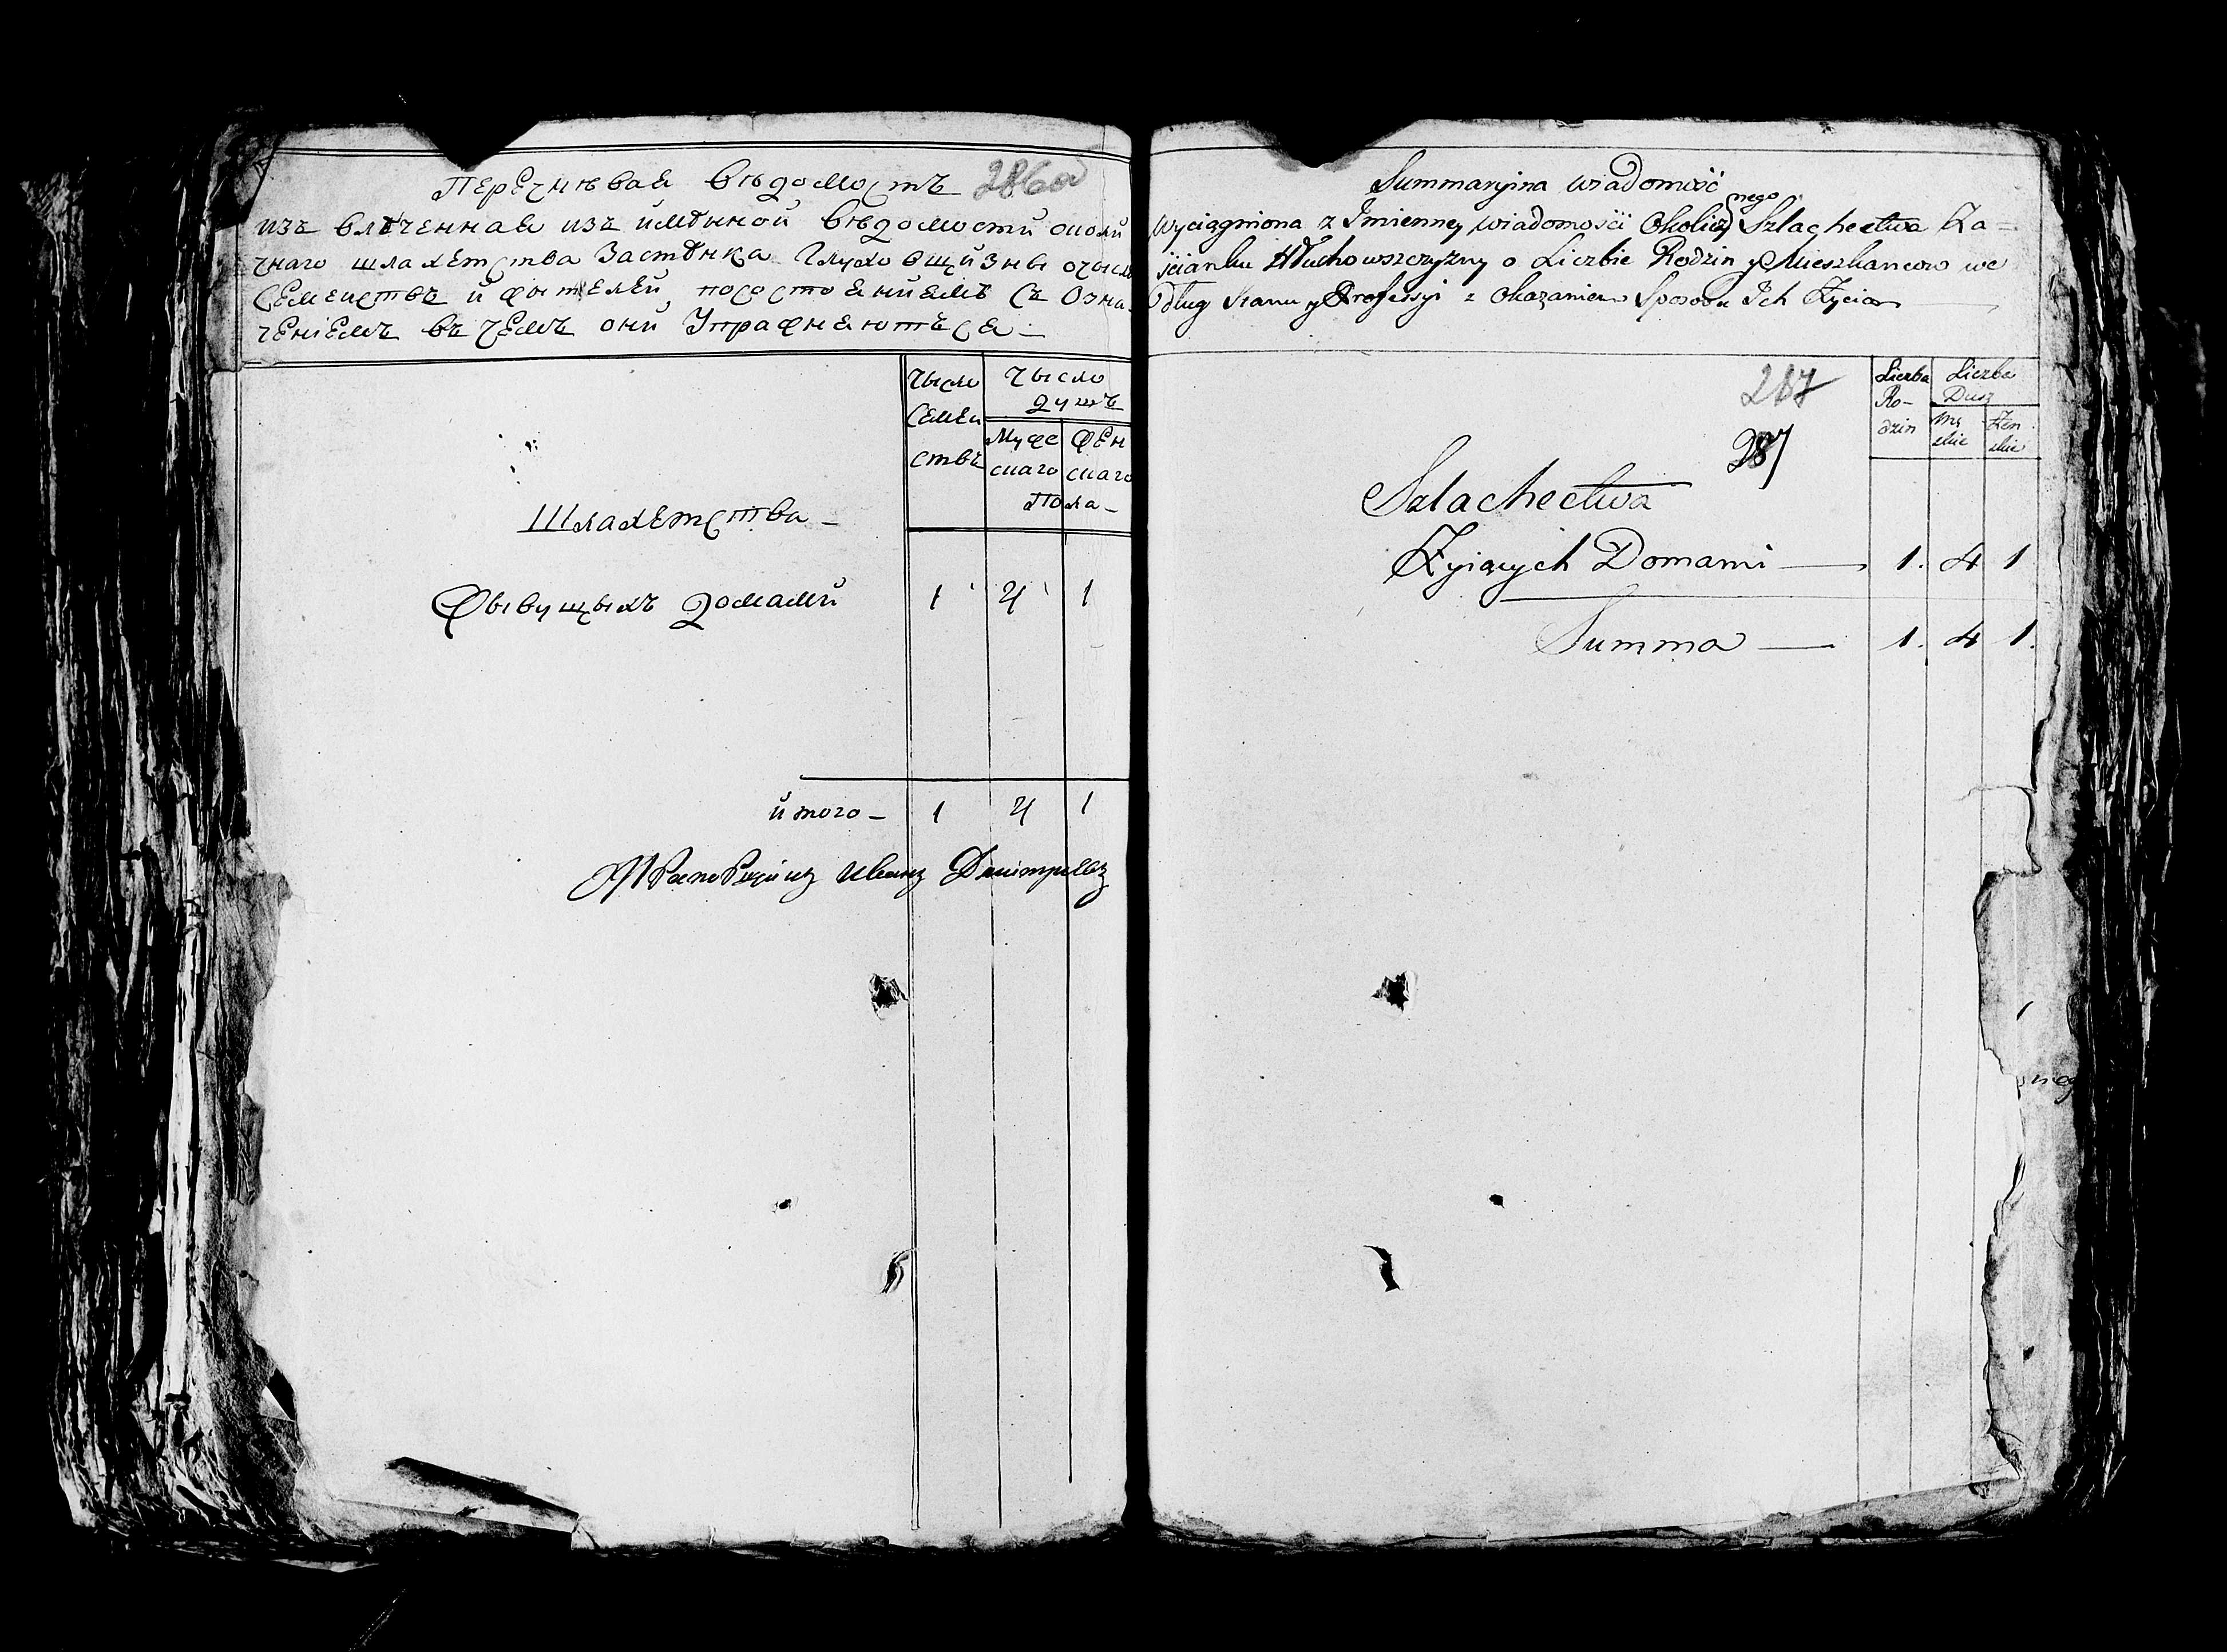 Перечневая вѣдомость 286об
изъ влѣченная из имѣнной вѣдомости околи
чнаго шлахетства Застѣнка Глухо вщизны о числѣ
семействъ и жытелей, посостоянiемъ съ Озна-
ченiемъ въ чемъ они Упражняютъся —
Число семей ствъ
Число душъ
Муже скаго
Жен скаго
Пола —
Шлахетства —
Жывущыхъ домами 1 4 1
итого — 1 4 1
Иванъ Дмитриевъ
Summaryjna wiadomość
wyciągniona z Imienney wiadomości Okolicznego Szlachectwa Za=
ścianku Hłuchowszczyzny o Liczbie Rodzin y Mieszkancow we
dług stanu y Professyi z okazaniem Sposobu Ich Życia
287
287
Liczba Ro- dzin
Liczba Dusz
Mę skie
Żen skie
Szlachectwa
Żyiących Domami — 1. 4 1
Summa — 1. 4 1.